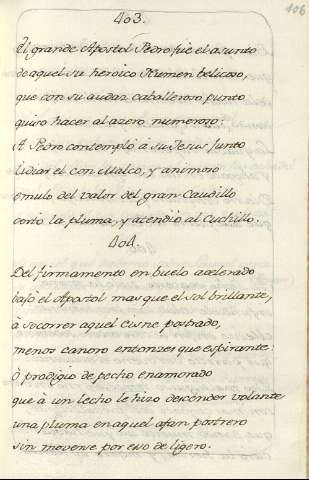 106
403.
El grande Apostol Pedro fue el asunto
de aquel su heroico Numen belicoso,
que con su audaz caballeroso punto
quiso hacer al azero numeroso:
A Pedro contemplò à su Jesus junto
lidiar el con Malco, y animoso
emulo del valor del gran Caudillo
corto la pluma, y atendio al Cuchillo.
404.
Del firmamento en buelo acelerado
bajò el Apostol mas que el sol brillante,
à socorrer aquel cisne postrado,
menos canoro entonzes que espirante:
ò prodigio de pecho enamorado
que à un lecho le hizo descender volante
una pluma en aquel afan postrero
sin moverse por eso de ligero.